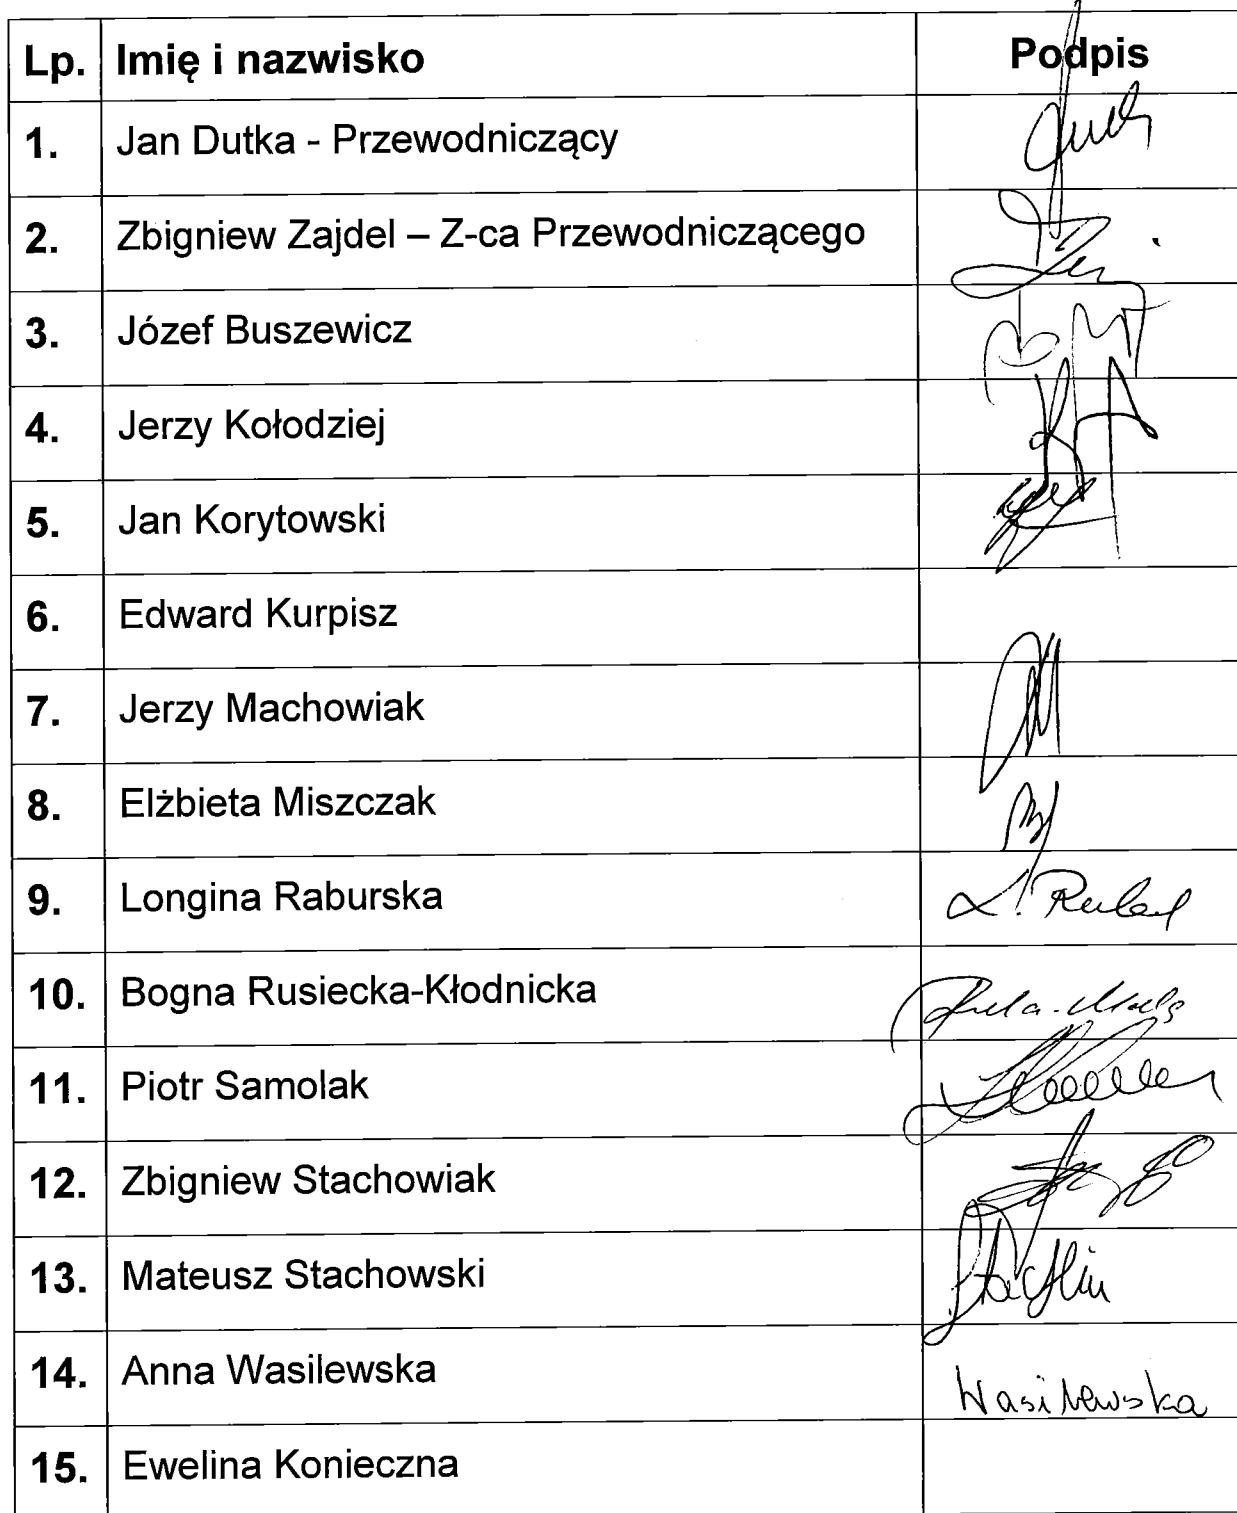 Lp. Imię i nazwisko Podpis
1. Jan Dutka - Przewodniczący
2. Zbigniew Zajdel – Z-ca Przewodniczącego
3. Józef Buszewicz
4. Jerzy Kołodziej
5. Jan Korytowski
6. Edward Kurpisz
7. Jerzy Machowiak
8. Elżbieta Miszczak
9. Longina Raburska L.
10. Bogna Rusiecka-Kłodnicka
11. Piotr Samolak
12. Zbigniew Stachowiak
13. Mateusz Stachowski
14. Anna Wasilewska Wasilewska
15. Ewelina Konieczna